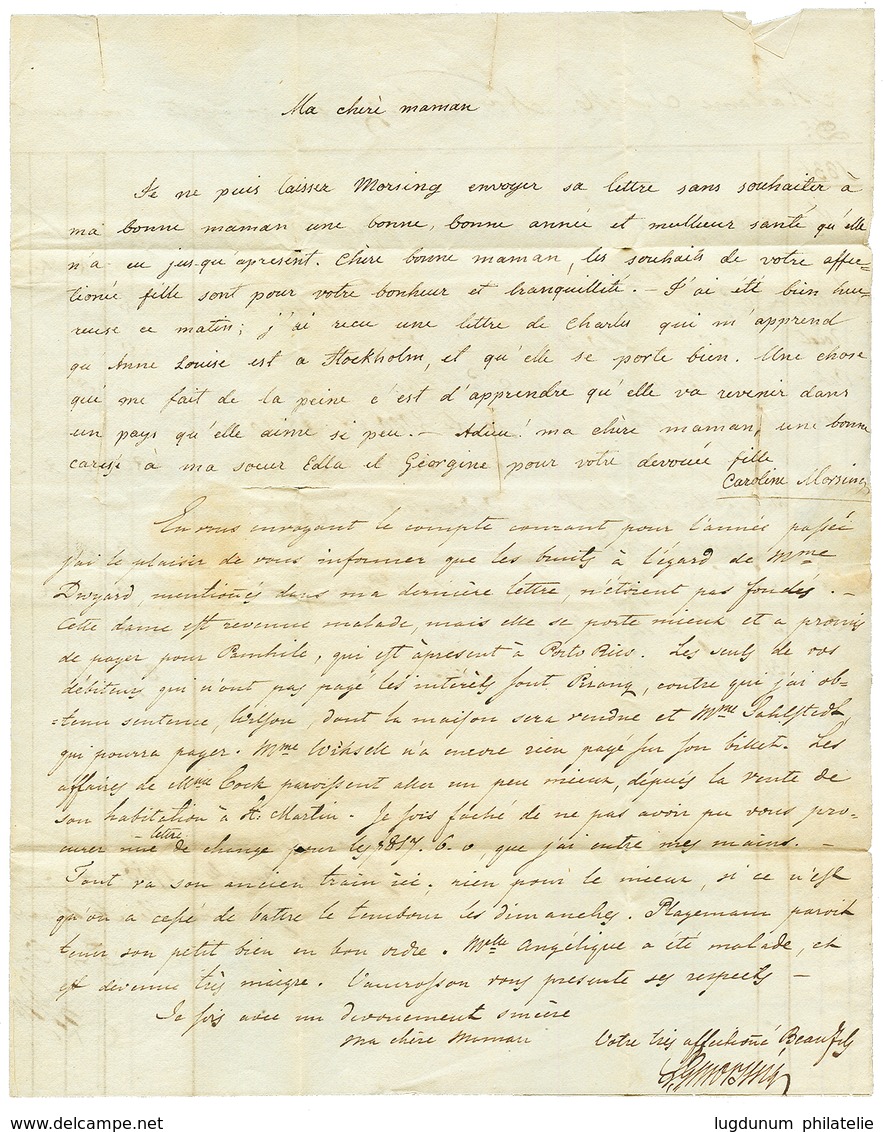 Ma chère maman
Je ne puis laisser Morsing envoyer sa lettre sans souhaiter à
ma bonne maman une bonne, bonne année et meilleur santé qu'elle
n'a eu jus-qu'apresent. Chère bonne maman, les souhaits de votre affec-
tionée fille sont pour votre bonheur et tranquillité. - J'ai été bien heu-
reuse ce matin; j'ai recu une lettre de Charles qui m'apprend
qu'Anne Louise est a Stockholm, et qu'elle se porte bien. Une chose
qui me fait de la peine c'est d'apprendre qu'elle va revenir dans
un pays qu'elle aime si peu. - Adieu! ma chère maman, une bonne
caresse à ma soeur Edla et Géorgine pour votre devouée fille
Caroline Morsing
En vous envoyant le compte courant pour l'année passée
j'ai le plaisir de vous informer que les bruits à l'égard de Mme
Dwyard, mentionés dans ma dernière lettre, n'étoient pas fondés. -
Cette dame est revenue malade, mais elle se porte mieux et a promis
de payer pour Pamhile, qui est àpresent à Porto Rico. Les seuls de vos
débiteurs qui n'ont pas payé les intérêts sont, contre qui j'ai ob-
=tenu sentence, Wilson, dont la maison sera vendue et Mme Dahlstedt,
qui pourra payer. Mme Wihsell n'a encore rien payé sur son billet. Les
affaires de Mme Cock paroissent aller un peu mieux, dépuis la vente de
son habitation à St. Martin. Je sois faché de ne pas avoir pu vous pro-
curer une lettre de change pour les, que j'ai entre mes mains. -
Tout va son ancien train ici, rien pour le mieux, si ce n'est
qu'on a cessé de battre le tambour les dimanches. Plagemann paroit
tenir son petit bien en bon ordre. Melle Angélique a été malade, et
est devenue très maigre. Vaucrosson vous presente ses respects -
Je sois avec un devouement sincère
ma chère Maman
Votre très affectioné Beaufils
www.delcampe.net
lugdunum philatelie